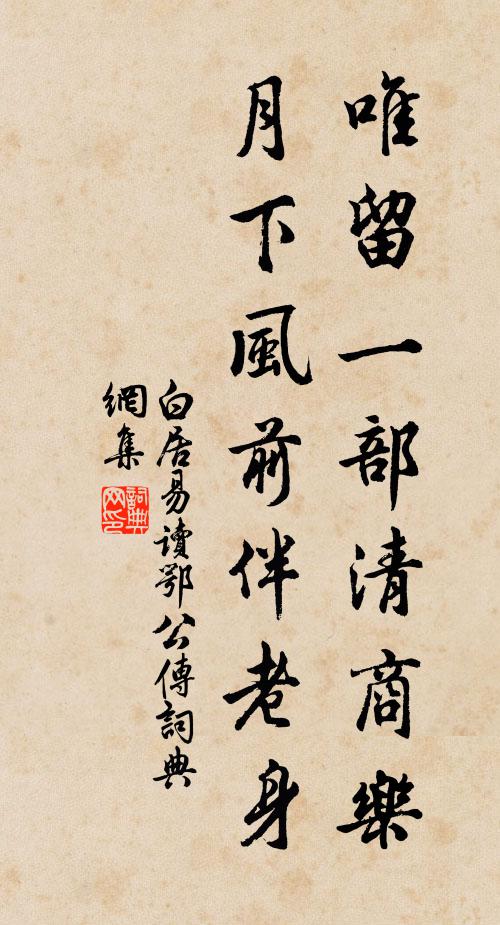 唯留一部清商樂
月下風前伴老身
白居易讀鄂公傳詞典
網集
詞典
网印